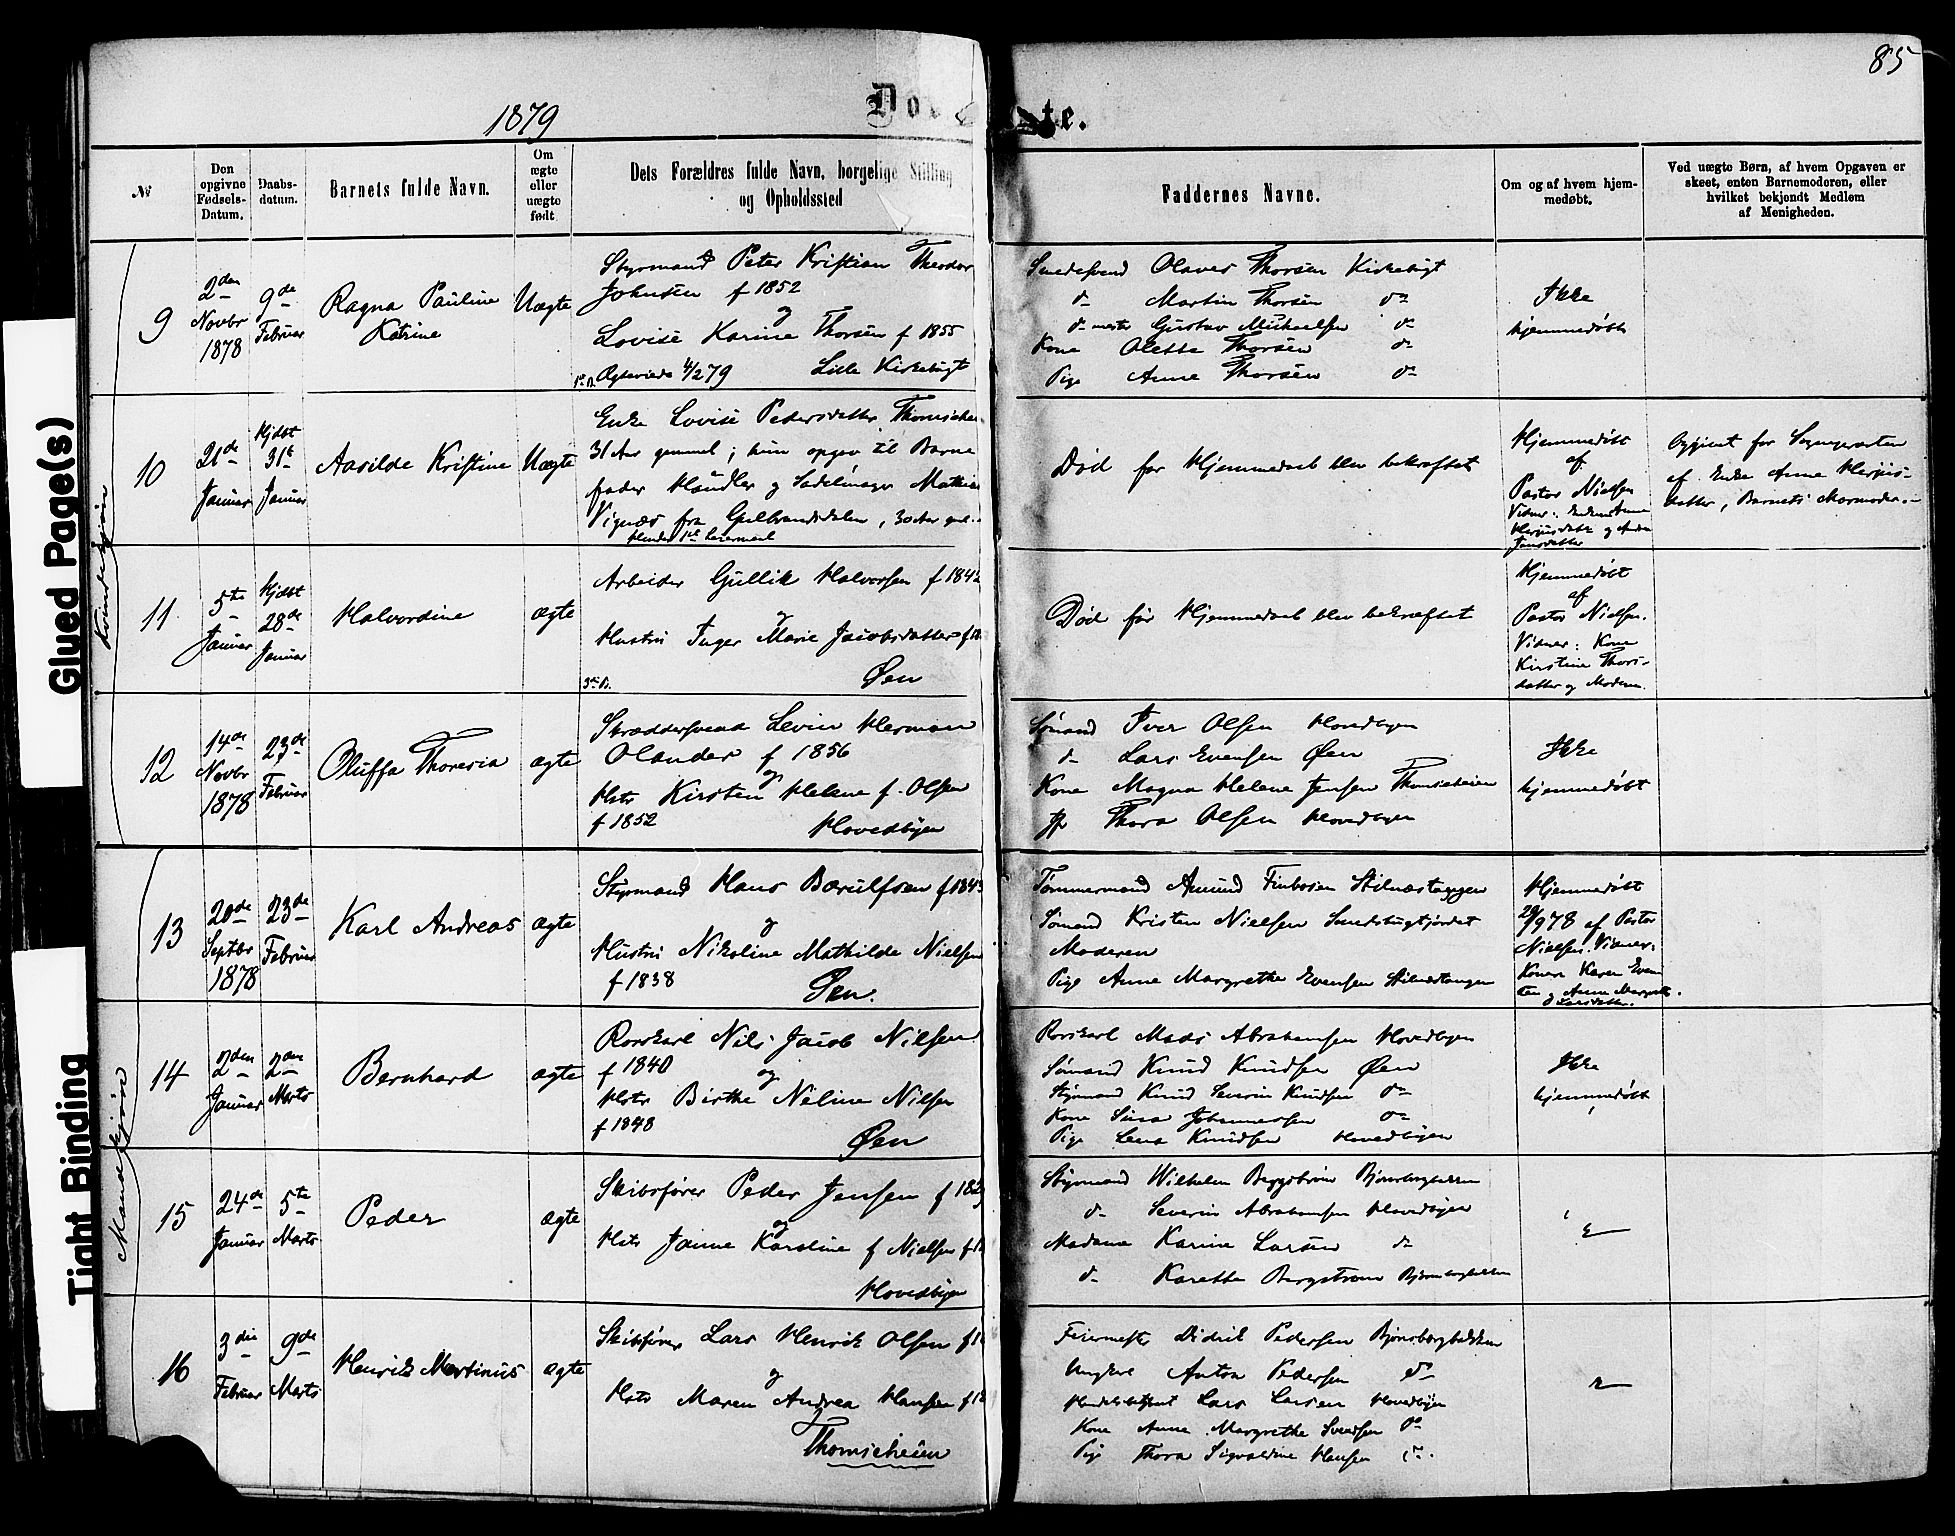 Glued Page(s)
Tight Binding
85
1879
Døbte.
№
Den opgivne Fødsels-Datum.
Daabs-datum.
Barnets fulde Navn.
Om ægte eller uægte født.
Dets Forældres fulde Navn, borgelige Stilling og Opholdssted
Faddernes Navne.
Om og af hvem hjem-medøbt.
Ved uægte Børn, af hvem Opgaven er skeet, enten Barnemoderen, eller hvilket bekjendt Medlem af Menigheden.
Kvindekjøn
9
2den Novbr 1878
9de Februar
Ragna Pauline Katrine
Uægte
Styrmand Peter Kristian Theodor
Johnsen f 1852
og
Lovise Karine Thorsen f 1855
Ægteviede 4/2 79 Lille Kirkebugt
Smedesvend Olaves Thorsen Kirkebugt
do Martin Thorsen do
do mester Gustav Michaelsen do
Kone Olette Thorsen do
Pige Anne Thorsen do
Ikke
hjemmedøbt
10
21de Januar
Hjdbt 31te Januar
Aasilde Kristine
Uægte
Enke Lovise Pedersdatter, Thomsehei
31 Aar gammel; hun opgav til Barne
fader Handler og Sadelmager Mathea
Vignæs fra Gulbrandsdalen, 30 Aar gel.
Hendes 1ste Leiermaal
Død før Hjemmedaab blev bekræftet
Hjemmedøbt
af
Pastor Nielsen
Vidner: Enken Anne
Opgivet for Sognepresten
af Enke Anne
datter, Barnets Mormoder.
11
5te Januar
Hjdbt 28de Januar
Halvordine
ægte
Arbeider Gullik Halvorsen f 1842
og
Hustru Inger Marie Jacobsdatter f 18
3die B. Øen
Død før Hjemmedaab blev bekræftet
Hjemmedøbt
af
Pastor Nielsen.
Vidner: Kone
Kirstine Thors-
datter og Moderen.
12
14de Novbr 1878
23de Februar
Oluffa Theresia
ægte
Skræddersvend Levin Herman
Olander f 1856
og
Hstr Kirsten Helene f. Olsen
f 1852 Hovedbyen
Sømand Iver Olsen Hovedbyen
do Lars Evensen Øen
Kone Magna Helene Jensen Thomseheien
Thora Olsen Hovedbyen
Ikke
hjemmedøbt
Mandkjøn
13
20de Septbr 1878
23de Februar
Karl Andreas
ægte
Styrmand Hans Bærulfsen f 1843
og
Hustru Nikoline Mathilde Nielsen
f 1838 Øen.
Tømmermand Amund Finbosen Stilnæstangen
Sømand Kristen Nielsen Sandsbugtfjordet
Moderen
Pige Anne Margrethe Evensen Stilnæstangen
Hjemmedøbt
29/9 78 af Pastor
Nielsen. Vidner:
Konen Karen Even
sen og Anne Margreth.
Larsdatter.
14
2den Januar
2den Marts
Bernhard
ægte
Rorskarl Nils Jacob Nilsen
f 1840
og
Hstr Birthe Neline Nilsen
f 1848
Øen
Rorskarl Mads Abrahamsen Hovedbyen
Sømand Knud Knudsen Øen
Styrmand Knud Severin Knudsen do
Kone Sina Johannessen do
Pige Lena Knudsen Hovedbyen
Ikke
hjemmedøbt
15
24de Januar
5te Marts
Peder
ægte
Skibsfører Peder Jensen f 183
og
Hstr Janne Karoline f Nielsen f 18
Hovedbyen
Styrmand Wilhelm Bergstrøm Bjønsbergbakken
do Severin Abrahamsen Hovedbyen
Madame Karine Larsen do
do Karette Bergstrøm Bjønsbergbakken
16
3die Februar
9de Marts
Henrik Martinius
ægte
Skibsfører Lars Henrik Olsen f 18
og
Hstr Maren Andrea Hansen f 18
Thomseheien
Feiermester Didrik Pedersen Bjønsbergbakken
Ungkarl Anton Pedersen do
Handelsbetjent Lars Larsen Hovedbyen
Kone Anne Margrethe Svendsen do
Pige Thora Sigvaldine Hansen do